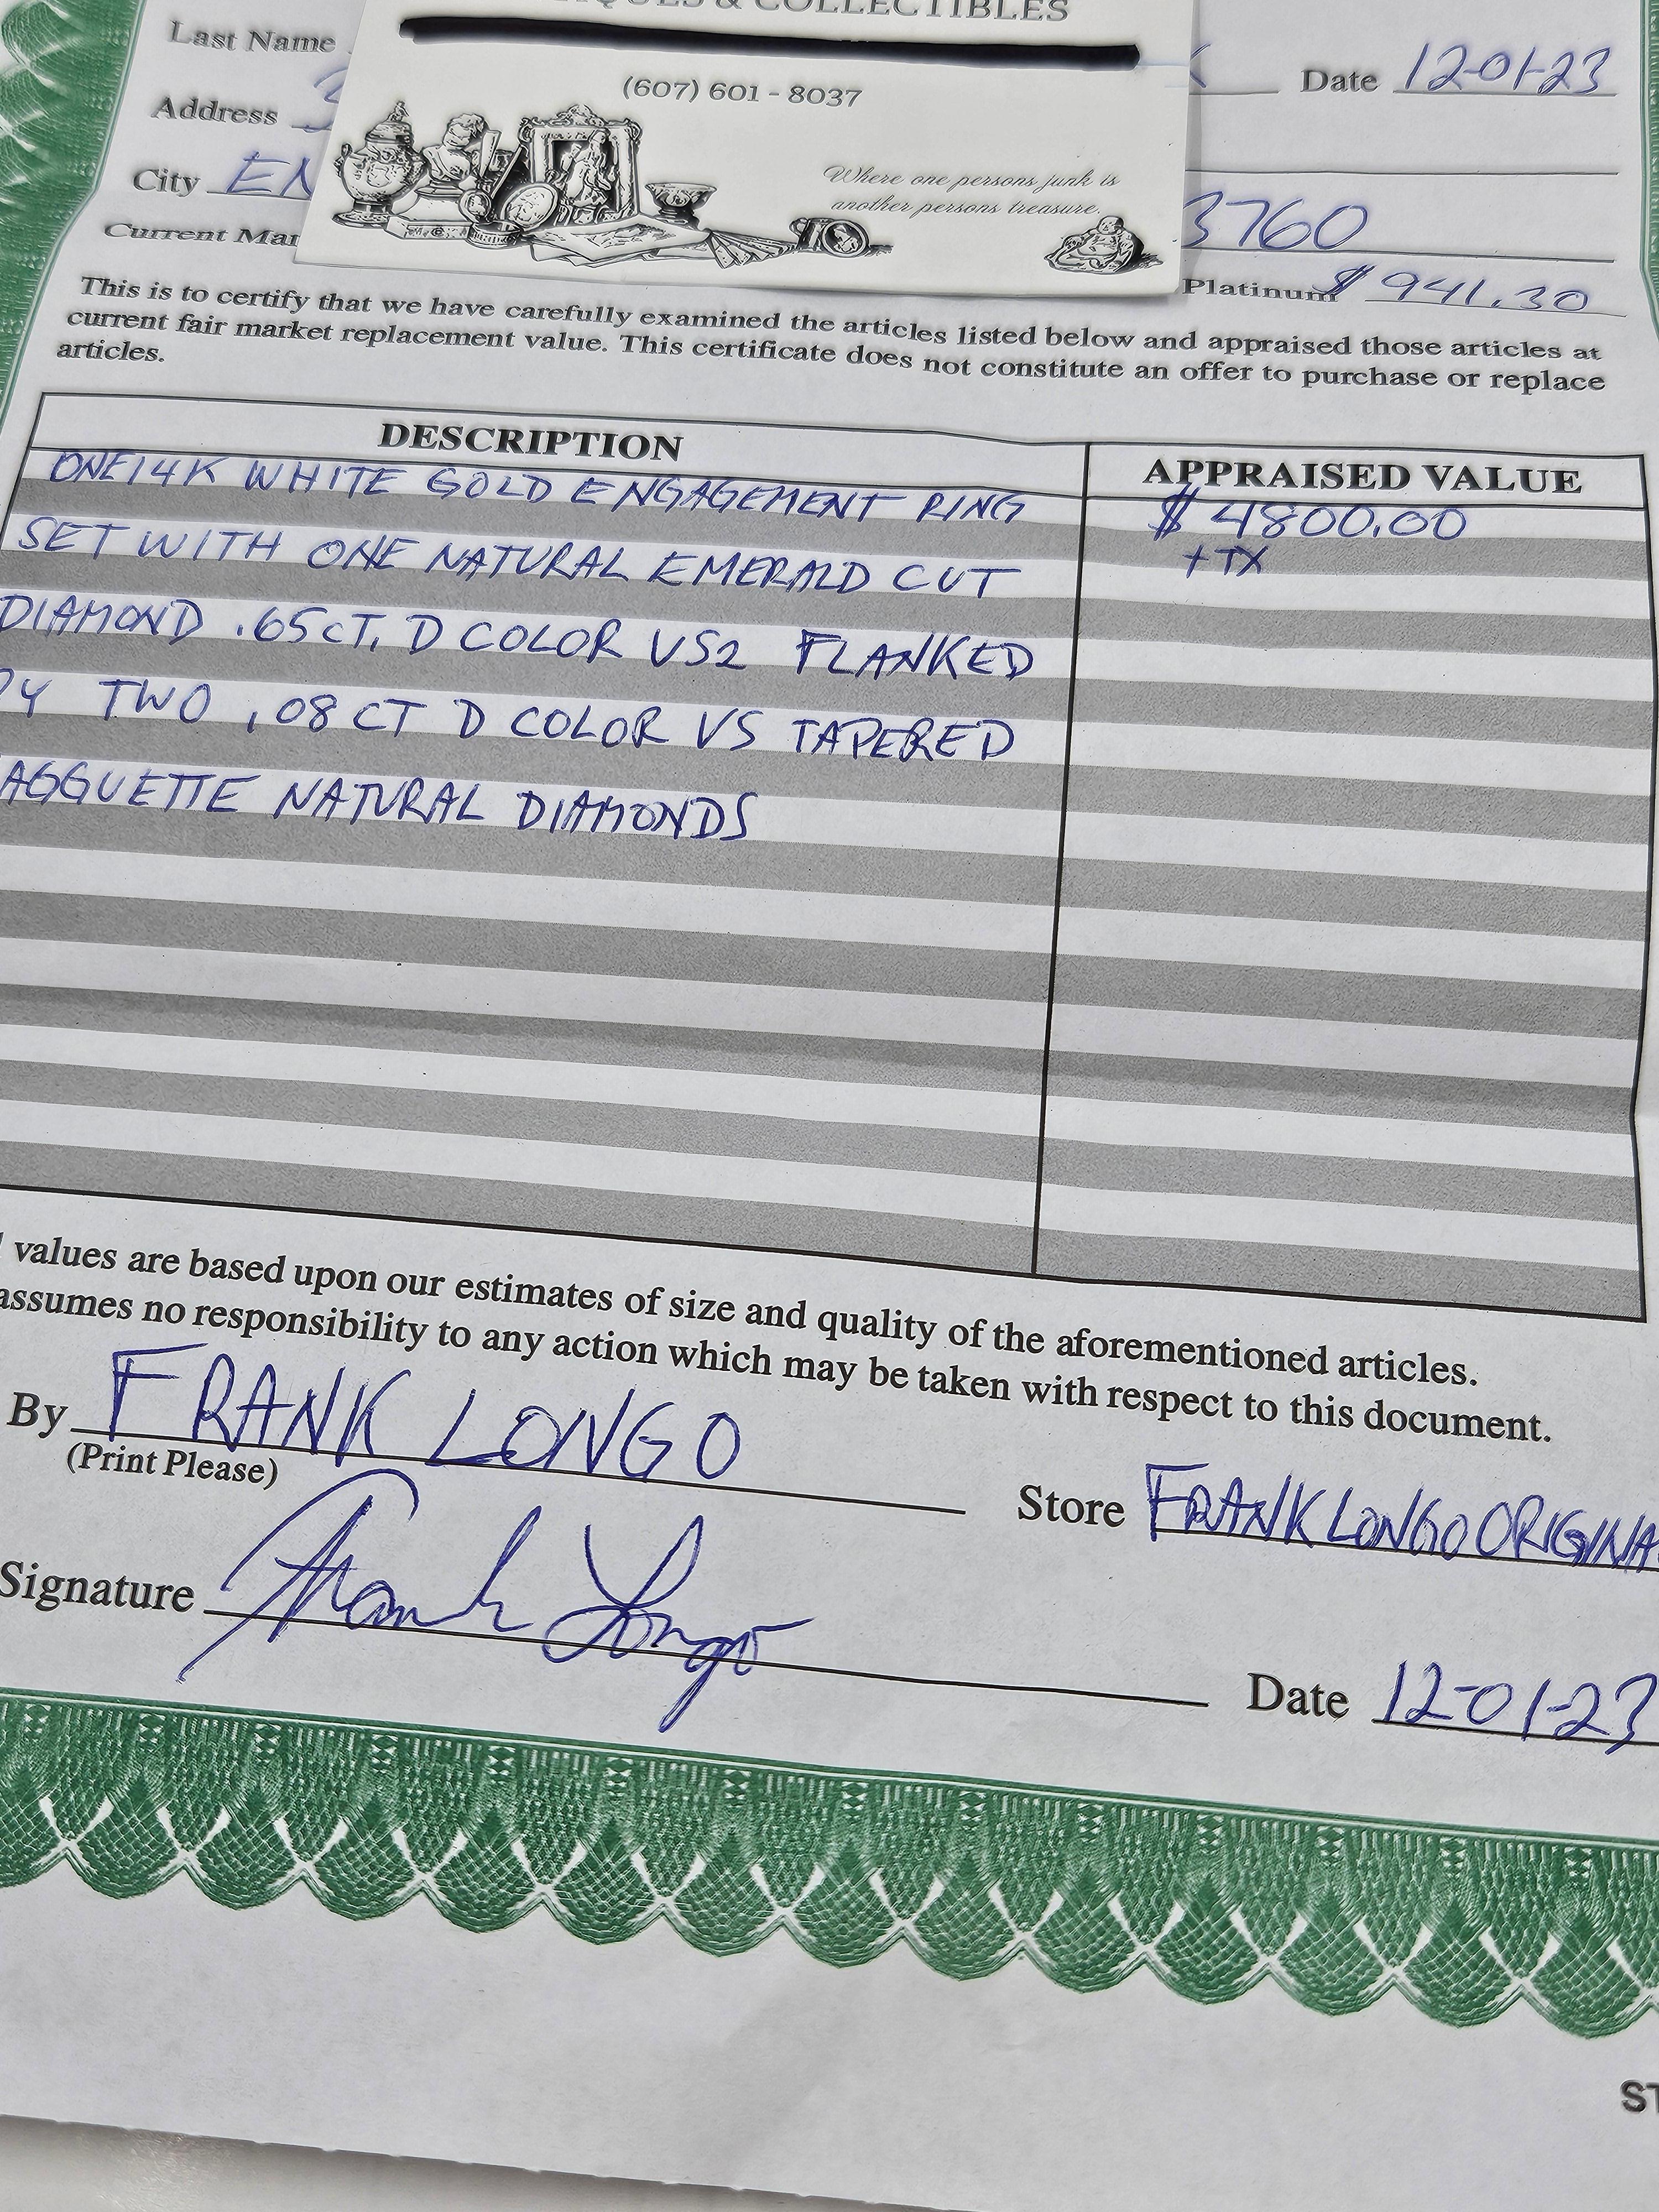 & COLLECTIBLES
Last Name
Date 12-01-23
(607) 601 - 8037
Address
Where one persons junk is
another persons treasure.
City EN
3760
Current Mar
Platinum $ 941.30
This is to certify that we have carefully examined the articles listed below and appraised those articles at
current fair market replacement value. This certificate does not constitute an offer to purchase or replace
articles.
DESCRIPTION
APPRAISED VALUE
ONE 14K WHITE GOLD ENGAGEMENT RING
$ 4800.00
SET WITH ONE NATURAL EMERALD CUT
+ TX
DIAMOND .65 CT, D COLOR VS2 FLANKED
BY TWO .08 CT D COLOR VS TAPERED
AGGUETTE NATURAL DIAMONDS
values are based upon our estimates of size and quality of the aforementioned articles.
assumes no responsibility to any action which may be taken with respect to this document.
By FRANK LONGO
(Print Please)
Store FRANK LONGO ORIGINA
Signature Frank Longo
Date 12-01-23
ST